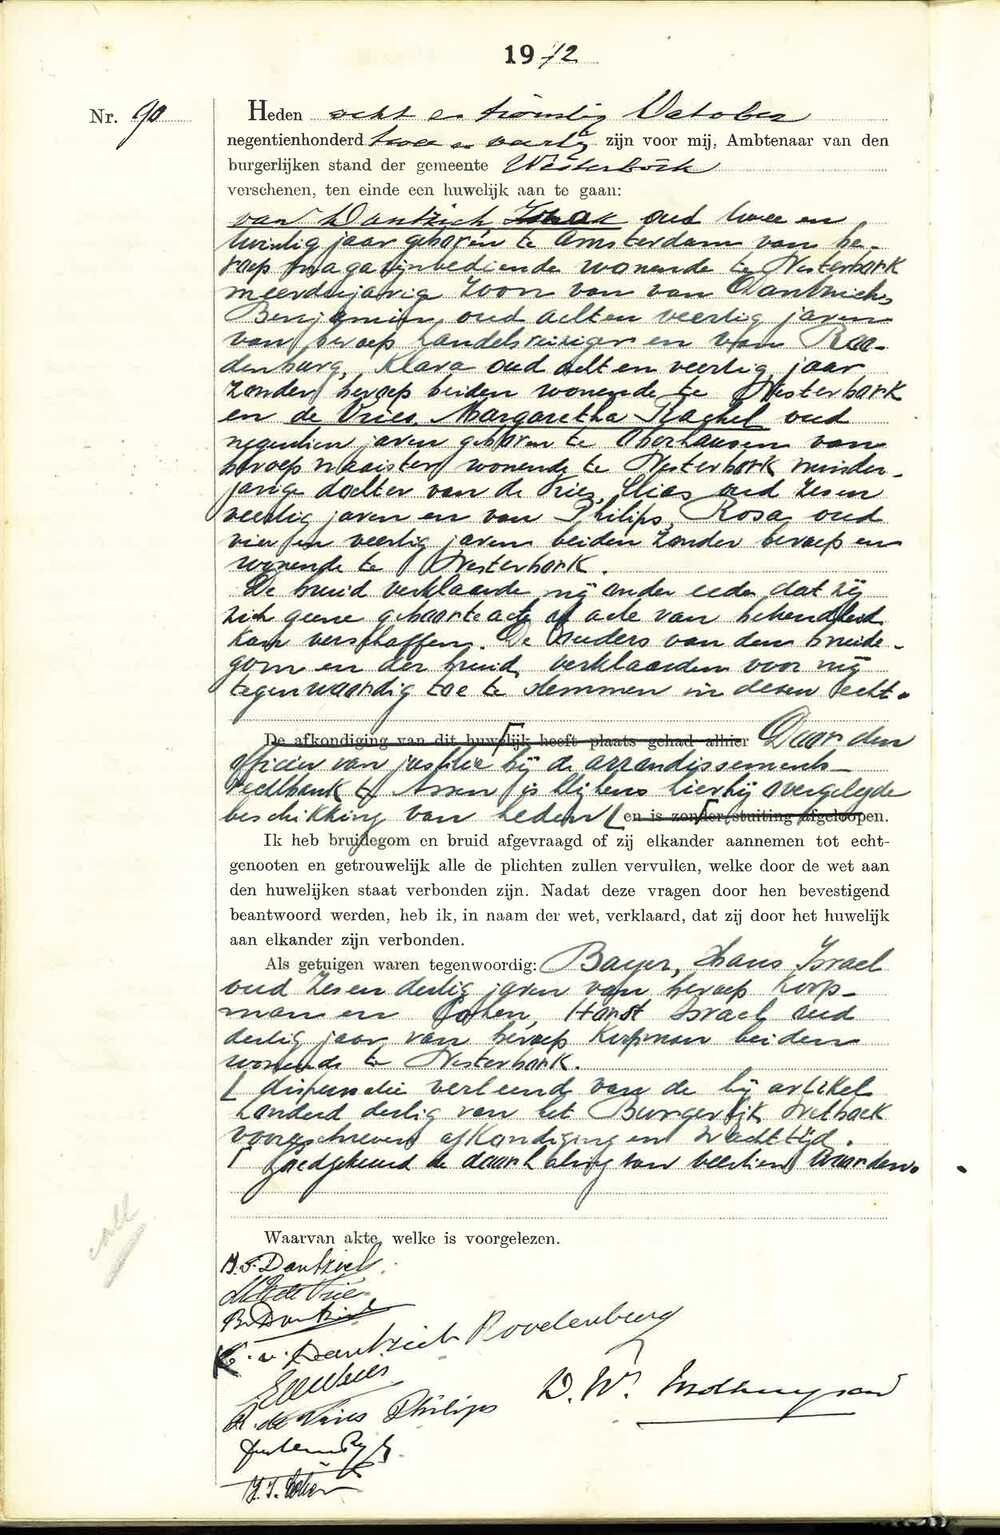 1942
Nr. 90
Heden acht en twintig October
negentienhonderd twee en veertig zijn voor mij, Ambtenaar van den
burgerlijken stand der gemeente Westerbork
verschenen, ten einde een huwelijk aan te gaan:
van Dantzich, Izaak oud twee en
twintig jaar geboren te Amsterdam van be-
roep magazijnbediende wonende te Westerbork
meerderjarige zoon van van Dantzich,
Benjamin, oud acht en veertig jaren
van beroep handelsreiziger en van Roo-
denburg, Klara oud acht en veertig jaar
zonder beroep beiden wonende te Westerbork
en de Vries, Margaretha Rachel oud
negentien jaren geboren te Oberhausen van
beroep naaister wonende te Westerbork minder-
jarige dochter van de Vries, Elias oud zes en
veertig jaren en van Philips, Rosa oud
vier en veertig jaren beiden zonder beroep en
wonende te Westerbork.
De bruid verklaarde mij onder eede dat zij
zich geene geboorteacte of acte van bekendheid
kan verschaffen. De Ouders van den bruide-
gom en der bruid verklaarden voor mij
tegenwoordig toe te stemmen in dezen echt.
De afkondiging van dit huwelijk heeft plaats gehad alhier Door den
officier van justitie bij de arrondissements-
rechtbank te Assen is blijkens hierbij overgelegde
beschikking van heden en is zonder stuiting afgeloopen.
Ik heb bruidegom en bruid afgevraagd of zij elkander aannemen tot echt-
genooten en getrouwelijk alle de plichten zullen vervullen, welke door de wet aan
den huwelijken staat verbonden zijn. Nadat deze vragen door hen bevestigend
beantwoord werden, heb ik, in naam der wet, verklaard, dat zij door het huwelijk
aan elkander zijn verbonden.
Als getuigen waren tegenwoordig: Bayer, Hans Israel
oud zes en dertig jaren van beroep Koop-
man en Cohen, Horst Israel oud
dertig jaar van beroep Koopman beiden
wonende te Westerbork.
dispensatie verleend van de bij artikel
honderd dertig van het Burgerlijk Wetboek
voorgeschreven afkondiging en wachttijd.
Goedgekeurd de doorhaling van veertien woorden.
Waarvan akte, welke is voorgelezen.
Dantzich
de Vries
B. v. Dantzich
K. v. Dantzich Roodenburg
E. de Vries
R. de Vries Philips
H. I. Cohen